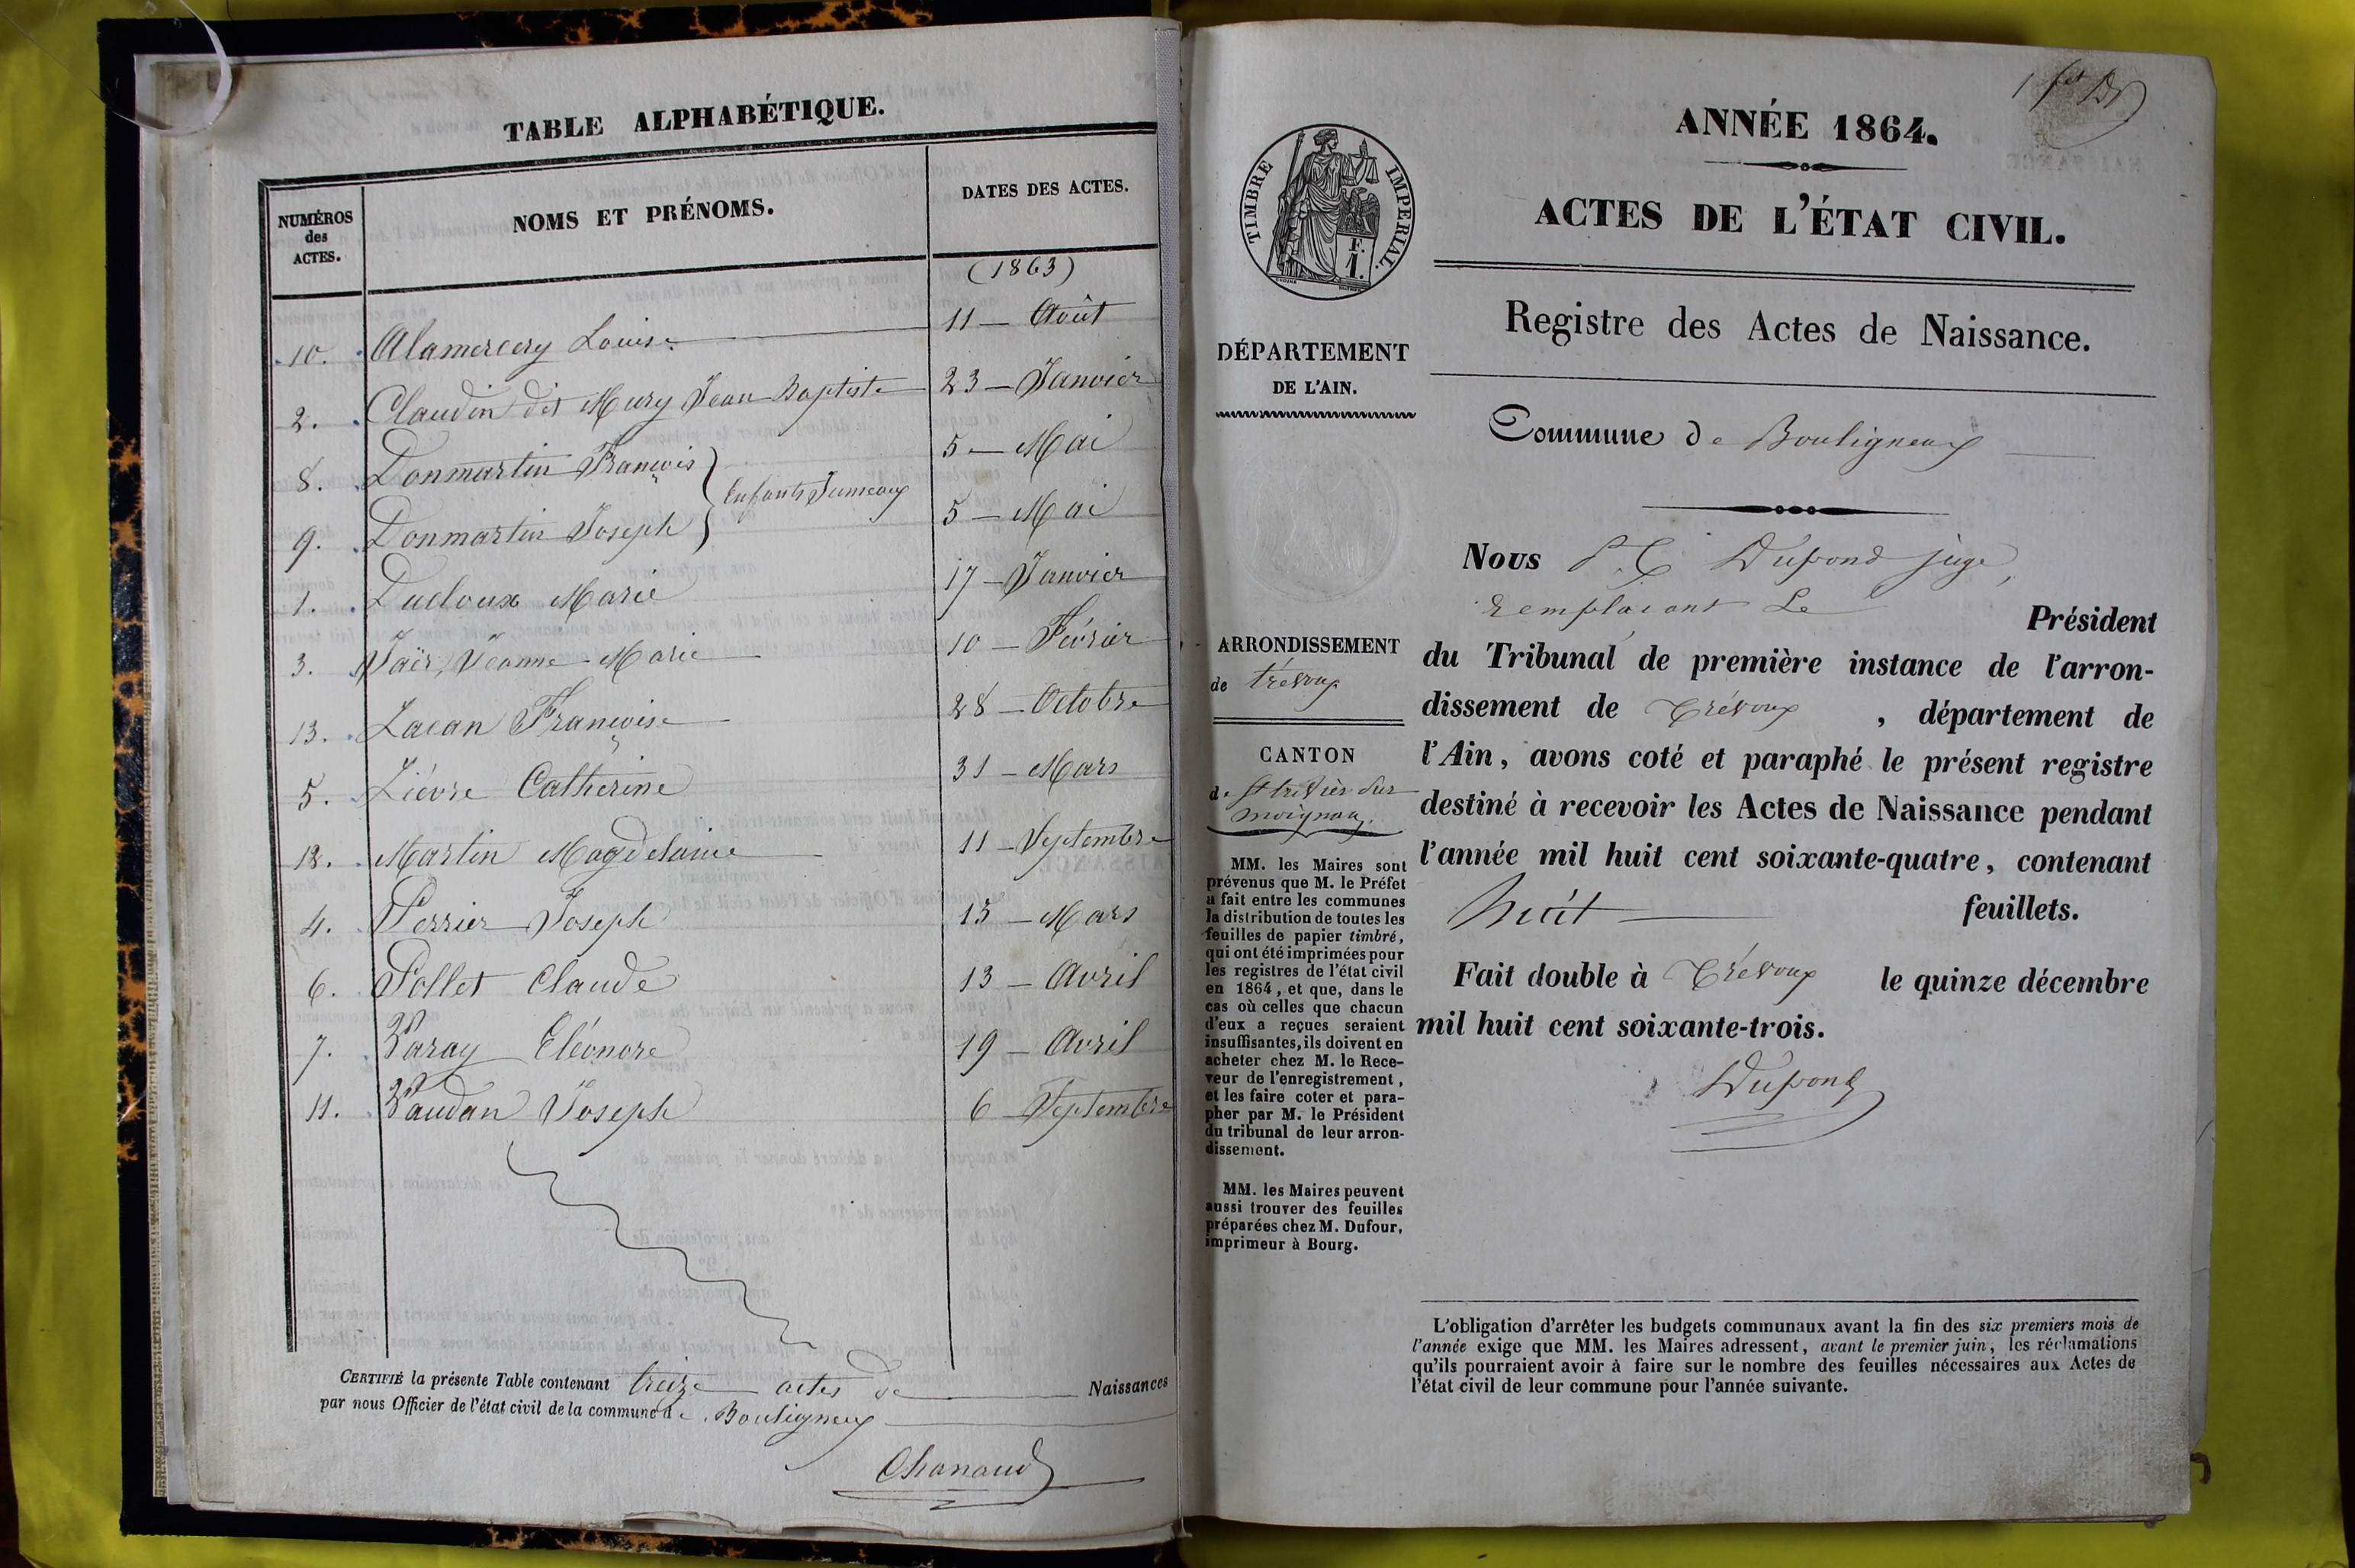 TABLE ALPHABÉTIQUE.
NUMÉROS des ACTES.
NOMS ET PRÉNOMS.
DATES DES ACTES.
(1863)
10. Alamercery Louise 11 — Août
2. Claudin dit Mury Jean Baptiste 23 — Janvier
8. Donmartin François 5 — Mai
Enfants Jumeaux
9. Donmartin Joseph 5 — Mai
1. Ducloux Marie 17 — Janvier
3. Jeanne Marie 10 — Février
13. Lacan Françoise 28 — Octobre
5. Lièvre Catherine 31 — Mars
12. Martin Magdelaine 11 — Septembre
4. Perrier Joseph 15 — Mars
6. Pollet Claude 13 — Avril
7. Varay Eléonore 19 — Avril
11. Vaudan Joseph 6 — Septembre
CERTIFIÉ la présente Table contenant treize actes de Naissances
par nous Officier de l'état civil de la commune de Bouligneux
Chanaud
ANNÉE 1864.
ACTES DE L'ÉTAT CIVIL.
Registre des Actes de Naissance.
TIMBRE IMPERIAL.
F.
1.
DÉPARTEMENT
DE L'AIN.
ARRONDISSEMENT
de Trévoux
CANTON
de St trivier sur
moignans.
MM. les Maires sont
prévenus que M. le Préfet
a fait entre les communes
la distribution de toutes les
feuilles de papier timbré,
qui ont été imprimées pour
les registres de l'état civil
en 1864, et que, dans le
cas où celles que chacun
d'eux a reçues seraient
insuffisantes, ils doivent en
acheter chez M. le Rece-
veur de l'enregistrement,
et les faire coter et para-
pher par M. le Président
du tribunal de leur arron-
dissement.
MM. les Maires peuvent
aussi trouver des feuilles
préparées chez M. Dufour,
imprimeur à Bourg.
Commune de Bouligneux
Nous Dupond juge,
remplaçant Le Président
du Tribunal de première instance de l'arron-
dissement de Trévoux, département de
l'Ain, avons coté et paraphé le présent registre
destiné à recevoir les Actes de Naissance pendant
l'année mil huit cent soixante-quatre, contenant
huit feuillets.
Fait double à Trévoux le quinze décembre
mil huit cent soixante-trois.
Dupond
L'obligation d'arrêter les budgets communaux avant la fin des six premiers mois de
l'année exige que MM. les Maires adressent, avant le premier juin, les réclamations
qu'ils pourraient avoir à faire sur le nombre des feuilles nécessaires aux Actes de
l'état civil de leur commune pour l'année suivante.